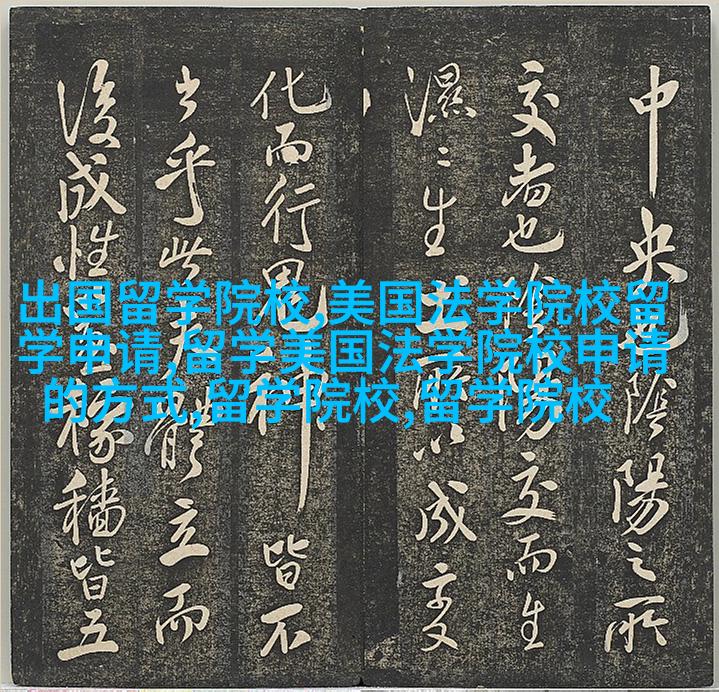 出国留学院校,美国法学院校留
学申请,留学美国法学院校申请
的方式,留学院校,留学院校
中央也陰陽之所
交者也陰陽交而生
濕〻生土所以成变
化而行鬼神皆不
出乎此體立而
後成性稼穡皆五